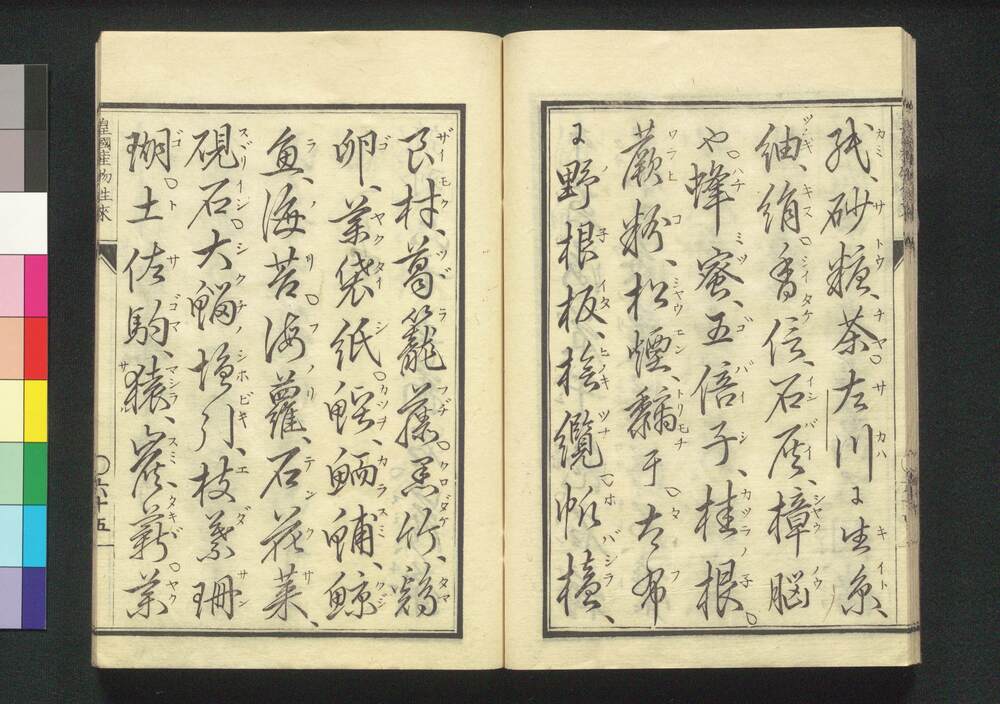 紙、砂糖、茶。左川ニ生糸、
紬、絹。香信、石灰、樟脳
や蜂蜜、五倍子、桂根。
蕨粉、松煙、黐于。太布
ニ野根板、桧纜。帆檣、
良材、葛籠藤。黒竹、鶏
卵、薬袋紙。鰹、鯔脯、鯨
魚、海苔。海蘿、石花菜、
硯石。大鯔塩引、枝葉珊
瑚。土佐駒、猿、炭、薪。薬
皇國産物往來
〇六十五